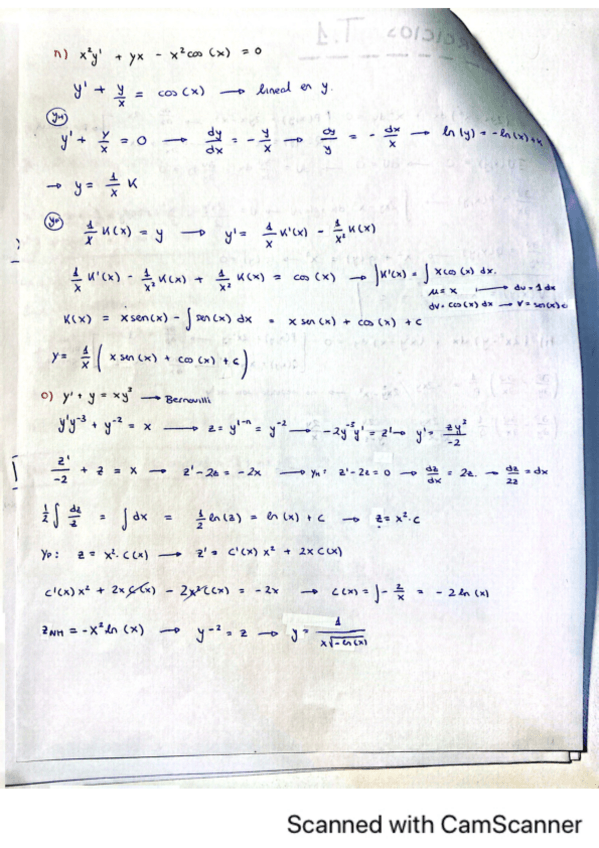 n) x²y' + yx - x²cos(x) = 0
y' + y/x = cos(x) → lineal en y.
yH
y' + y/x = 0 → dy/dx = -y/x → dy/y = -dx/x → ln(y) = -ln(x)+k
→ y = 1/x K
yP
1/x K(x) = y → y' = 1/x K'(x) - 1/x² K(x)
1/x K'(x) - 1/x² K(x) + 1/x² K(x) = cos(x) → ∫K'(x) = ∫ x cos(x) dx.
u = x → du = 1 dx
dv = cos(x) dx → v = sen(x)
K(x) = x sen(x) - ∫ sen(x) dx = x sen(x) + cos(x) + c
y = 1/x ( x sen(x) + cos(x) + c )
o) y' + y = xy³ → Bernouilli
y'y⁻³ + y⁻² = x → z = y¹⁻ⁿ = y⁻² → -2y⁻³y' = z' → y' = zy³/-2
z'/-2 + z = x → z' - 2z = -2x → yH: z' - 2z = 0 → dz/dx = 2z → dz/2z = dx
1/2 ∫ dz/z = ∫ dx = 1/2 ln(z) = ln(x) + c → z = x²·c
yP: z = x²·c(x) → z' = c'(x) x² + 2x c(x)
c'(x) x² + 2x c(x) - 2x² c(x) = -2x → c(x) = ∫ - 2/x = -2 ln(x)
zNH = -x² ln(x) → y⁻² = z → y = 1/x√-ln(x)
Scanned with CamScanner